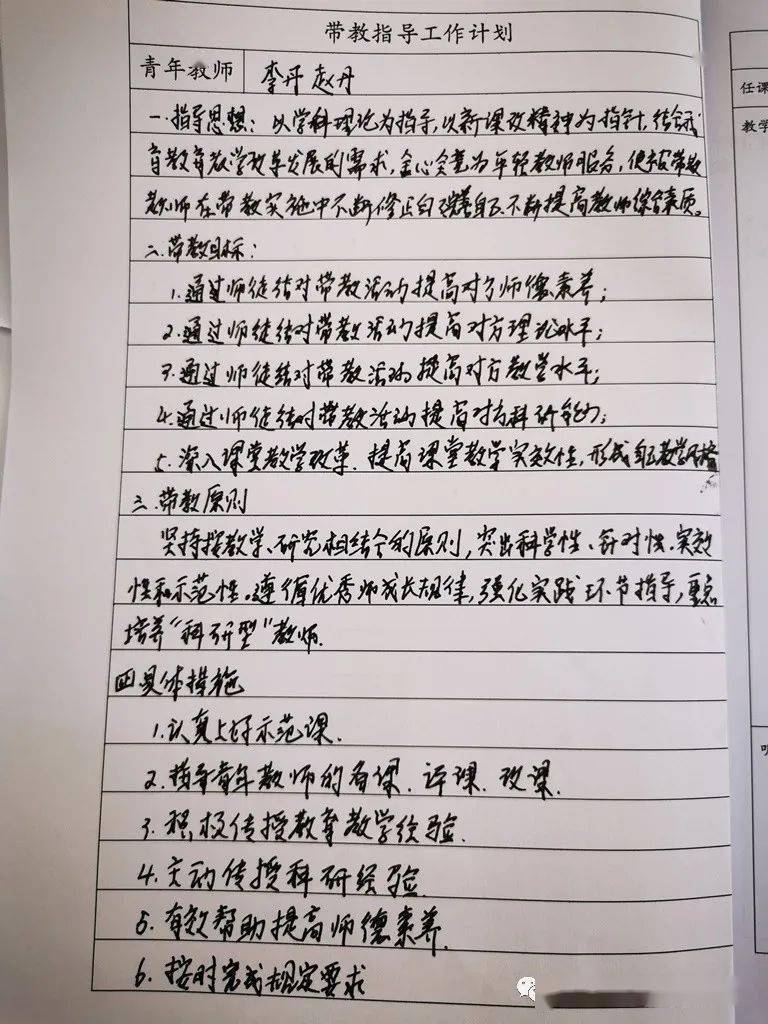 带教指导工作计划
青年教师 李丹 赵丹
一.指导思想：以学科理论为指导，以新课改精神为指针，结合我
育教育教学改革发展的需求，全心全意为年轻教师服务，使被带教
教师在带教实施中不断修正自己完善自己、不断提高教师综合素质。
二.带教目标：
1.通过师徒结对带教活动提高对方师德素养；
2.通过师徒结对带教活动提高对方理论水平；
3.通过师徒结对带教活动提高对方教学水平；
4.通过师徒结对带教活动提高对方科研能力；
5.深入课堂教学改革.提高课堂教学实效性，形成自己教学风格
三.带教原则
坚持按教学、研究相结合的原则，突出科学性、针对性.实效
性和示范性。遵循优秀师成长规律，强化实践环节指导，重点
培养“科研型”教师.
四具体措施
1.认真上好示范课.
2.指导青年教师的备课.评课.改课.
3.积极传授教育教学经验.
4.主动传授科研经验
5.有效帮助提高师德素养.
6.按时完成规定要求
任课
教学